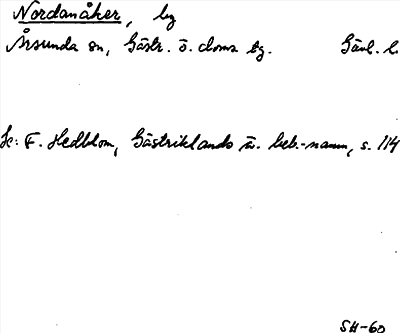 Nordanåker, by
Årsunda sn, Gästr. ö. doms tg. Gävl. l.
Se: F. Hedblom, Gästriklands ä. beb.-namn, s. 114
SH-60